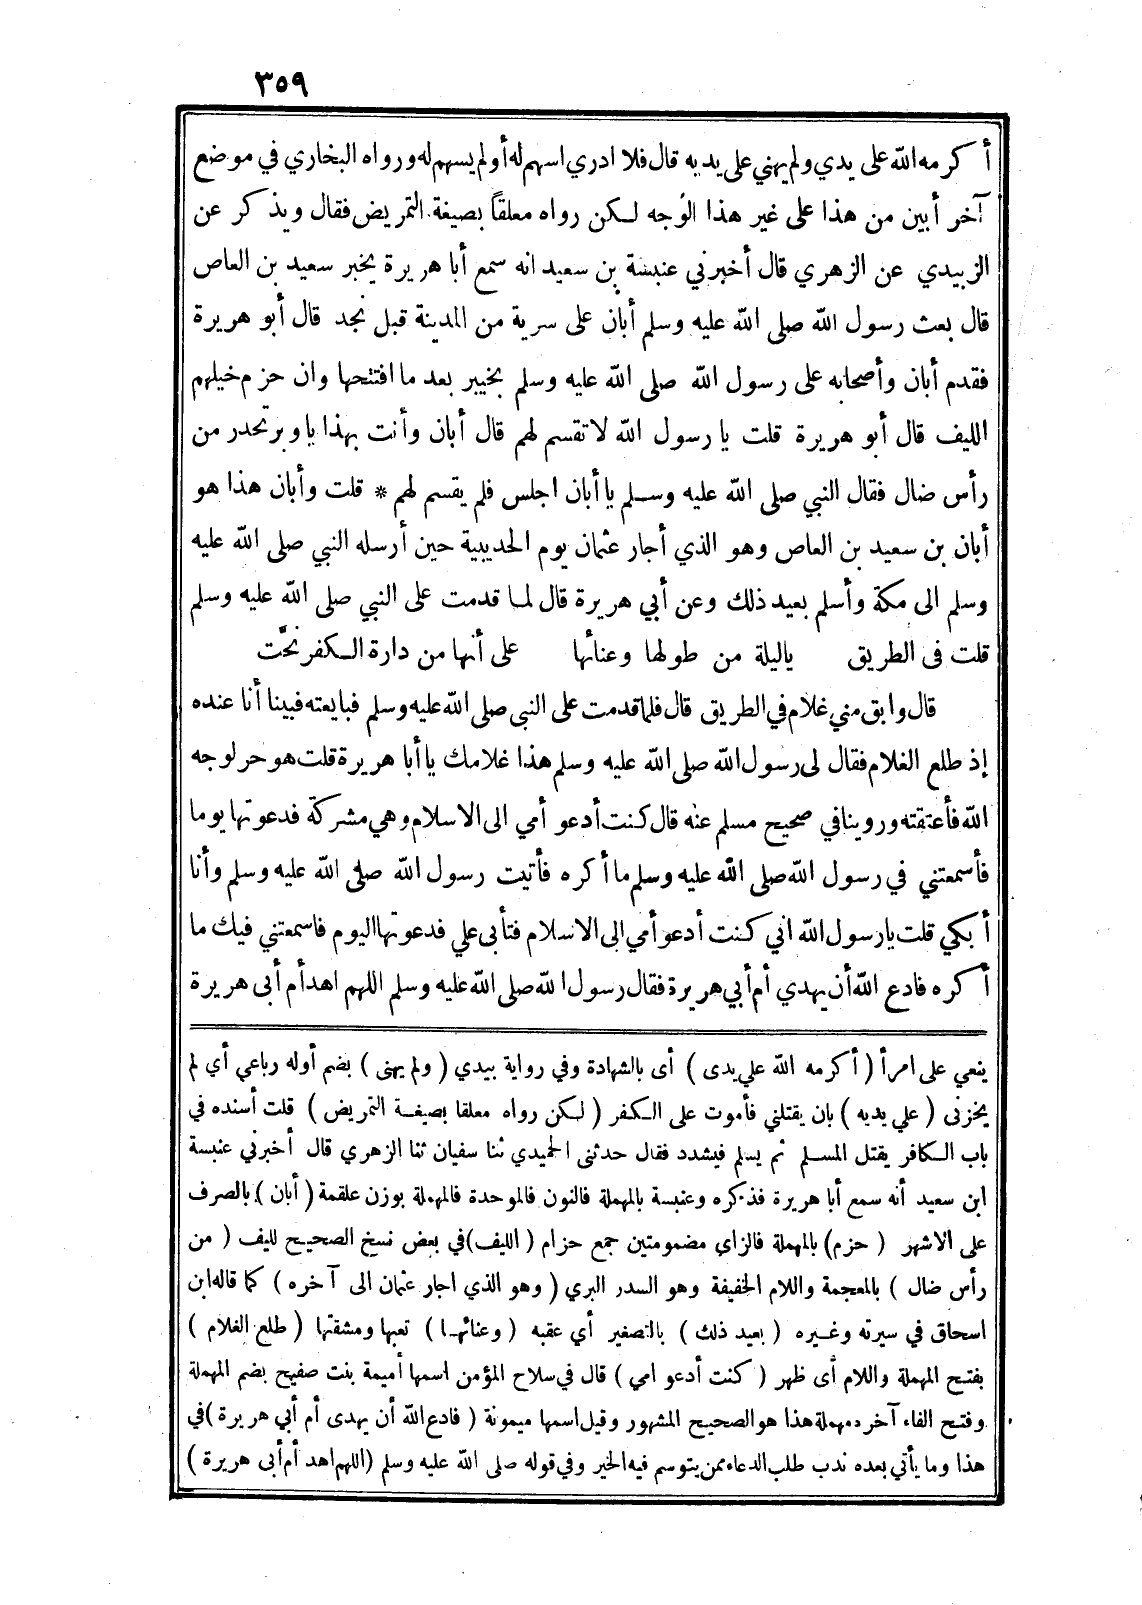 ٣٥٩
أكرمه الله على يدي ولم يهني على يديه قال فلا ادري اسهم له أو لم يسهم له ورواه البخاري في موضع
آخر أبين من هذا على غير هذا الوجه لكن رواه معلقاً بصيغة التمريض فقال ويذكر عن
الزبيدي عن الزهري قال أخبرني عنبسة بن سعيد انه سمع أبا هريرة يخبر سعيد بن العاص
قال بعث رسول الله صلى الله عليه وسلم أبان على سرية من المدينة قبل نجد قال أبو هريرة
فقدم أبان وأصحابه على رسول الله صلى الله عليه وسلم بخيبر بعد ما افتتحها وان حزم خيلهم
الليف قال أبو هريرة قلت يا رسول الله لا تقسم لهم قال أبان وأنت بهذا يا وبر تحدر من
رأس ضال فقال النبي صلى الله عليه وسلم يا أبان اجلس فلم يقسم لهم * قلت وأبان هذا هو
أبان بن سعيد بن العاص وهو الذي أجار عثمان يوم الحديبية حين أرسله النبي صلى الله عليه
وسلم الى مكة وأسلم بعيد ذلك وعن أبي هريرة قال لما قدمت على النبي صلى الله عليه وسلم
قلت فى الطريق ياليلة من طولها وعنائها على أنها من دارة الكفر نحّت
قال وابق مني غلام في الطريق قال فلما قدمت على النبي صلى الله عليه وسلم فبايعته فبينا أنا عنده
إذ طلع الغلام فقال لى رسول الله صلى الله عليه وسلم هذا غلامك يا أبا هريرة قلت هو حر لوجه
الله فأعتقته وروينا في صحيح مسلم عنه قال كنت أدعو أمي الى الاسلام وهي مشركة فدعوتها يوما
فأسمعتني في رسول الله صلى الله عليه وسلم ما أكره فأتيت رسول الله صلى الله عليه وسلم وأنا
أبكي قلت يارسول الله اني كنت أدعو أمي الى الاسلام فتأبى علي فدعوتها اليوم فاسمعتني فيك ما
أكره فادع الله أن يهدي أم أبي هريرة فقال رسول الله صلى الله عليه وسلم اللهم اهد أم أبى هريرة
ينعي على امرأ ( أكرمه الله علي يدى ) أى بالشهادة وفي رواية بيدي ( ولم يهنى ) بضم أوله رباعي أي لم
يخزنى ( علي يديه ) بان يقتلني فأموت على الكفر ( لكن رواه معلقا بصيغة التمريض ) قلت أسنده في
باب الكافر يقتل المسلم ثم يسلم فيشدد فقال حدثنى الحميدي ثنا سفيان ثنا الزهري قال أخبرني عنبسة
ابن سعيد أنه سمع أبا هريرة فذكره وعنبسة بالمهملة فالنون فالموحدة فالمهملة بوزن علقمة ( أبان ) بالصرف
على الاشهر ( حزم ) بالمهملة فالزاي مضمومتين جمع حزام ( الليف ) في بعض نسخ الصحيح لليف ( من
رأس ضال ) بالمعجمة واللام الخفيفة وهو السدر البري ( وهو الذي اجار عثمان الى آخره ) كما قاله ابن
اسحاق في سيرته وغيره ( بعيد ذلك ) بالتصغير أي عقبه ( وعنائها ) تعبها ومشقتها ( طلع الغلام )
بفتح المهملة واللام أى ظهر ( كنت أدعو امي ) قال في سلاح المؤمن اسمها أميمة بنت صفيح بضم المهملة
وفتح الفاء آخره مهملة هذا هو الصحيح المشهور وقيل اسمها ميمونة ( فادع الله أن يهدى أم أبي هريرة ) في
هذا وما يأتي بعده ندب طلب الدعاء ممن يتوسم فيه الخير وفي قوله صلى الله عليه وسلم ( اللهم اهد أم أبى هريرة )